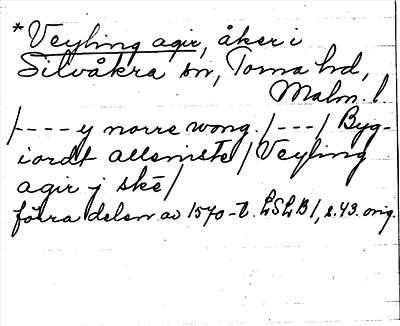 *Veyling agir, åker i
Silvåkra sn, Torna hd,
Malm. l
/---- y norre wong. /---/ Byg-
iordt allemste / Veyling
agir j skē /
förra delen av 1570-t. LSLB 1, s. 43. orig.